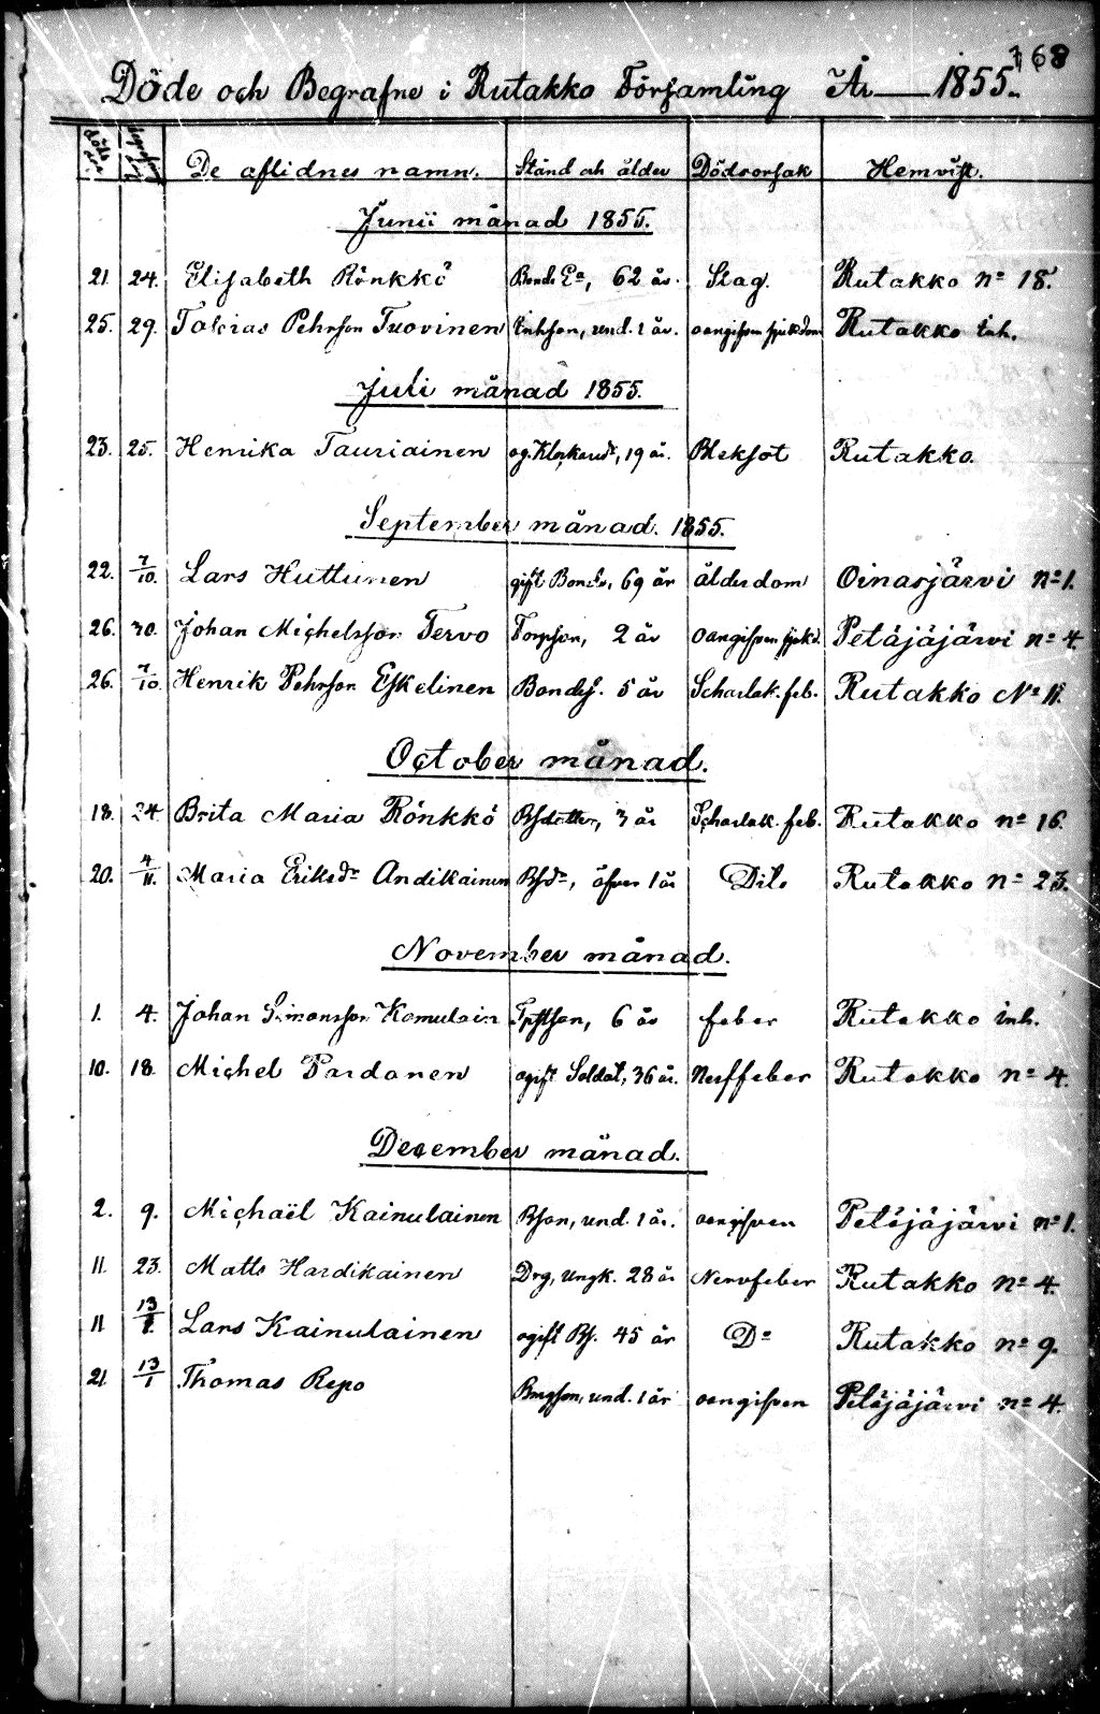 168
Döde och Begrafne i Rutakko Församling År 1855.
De aflidnes namn. Stånd och ålder Dödsorsak Hemvist.
Junii månad 1855.
21 24. Elisabeth Rönkkö Bonde Ea, 62 år. Slag. Rutakko no 18.
25. 29. Tobias Pehrsson Tuovinen Inhson, und. 1 år. oangifven sjukdom Rutakko inh.
Juli månad 1855.
23. 25. Henrika Tauriainen og. 19 år. Bleksot Rutakko.
September månad. 1855.
22. 7/10. Lars Huttunen gift Bonde, 69 år ålderdom Oinasjärvi no 1.
26. 30. Johan Michelsson Tervo Torpson, 2 år oangifven sjukd. Petäjäjärvi no 4.
26. 7/10. Henrik Pehrsson Eskelinen Bondes. 5 år Scharlak. feb. Rutakko No 11.
October månad.
18. 24. Brita Maria Rönkkö Bsdotter, 3 år Scharlak. feb. Rutakko no 16.
20. 4/11. Maria Eriksdr Andikainen Bsdr, öfver 1 år Dito Rutakko no 23.
November månad.
1. 4. Johan Simonsson Komulain 6 år feber Rutakko inh.
10. 18. Michel Pardanen ogift Soldat, 36 år. Nerffeber Rutakko no 4.
December månad.
2. 9. Michaël Kainulainen Bson, und. 1 år. oangifven Petäjäjärvi no 1.
11. 23. Matts Hardikainen Drg, Ungk. 28 år Nervfeber Rutakko no 4.
11 13/1. Lars Kainulainen ogift Bs. 45 år Do Rutakko no 9.
21. 13/1 Thomas Repo und. 1 år oangifven Petäjäjärvi no 4.